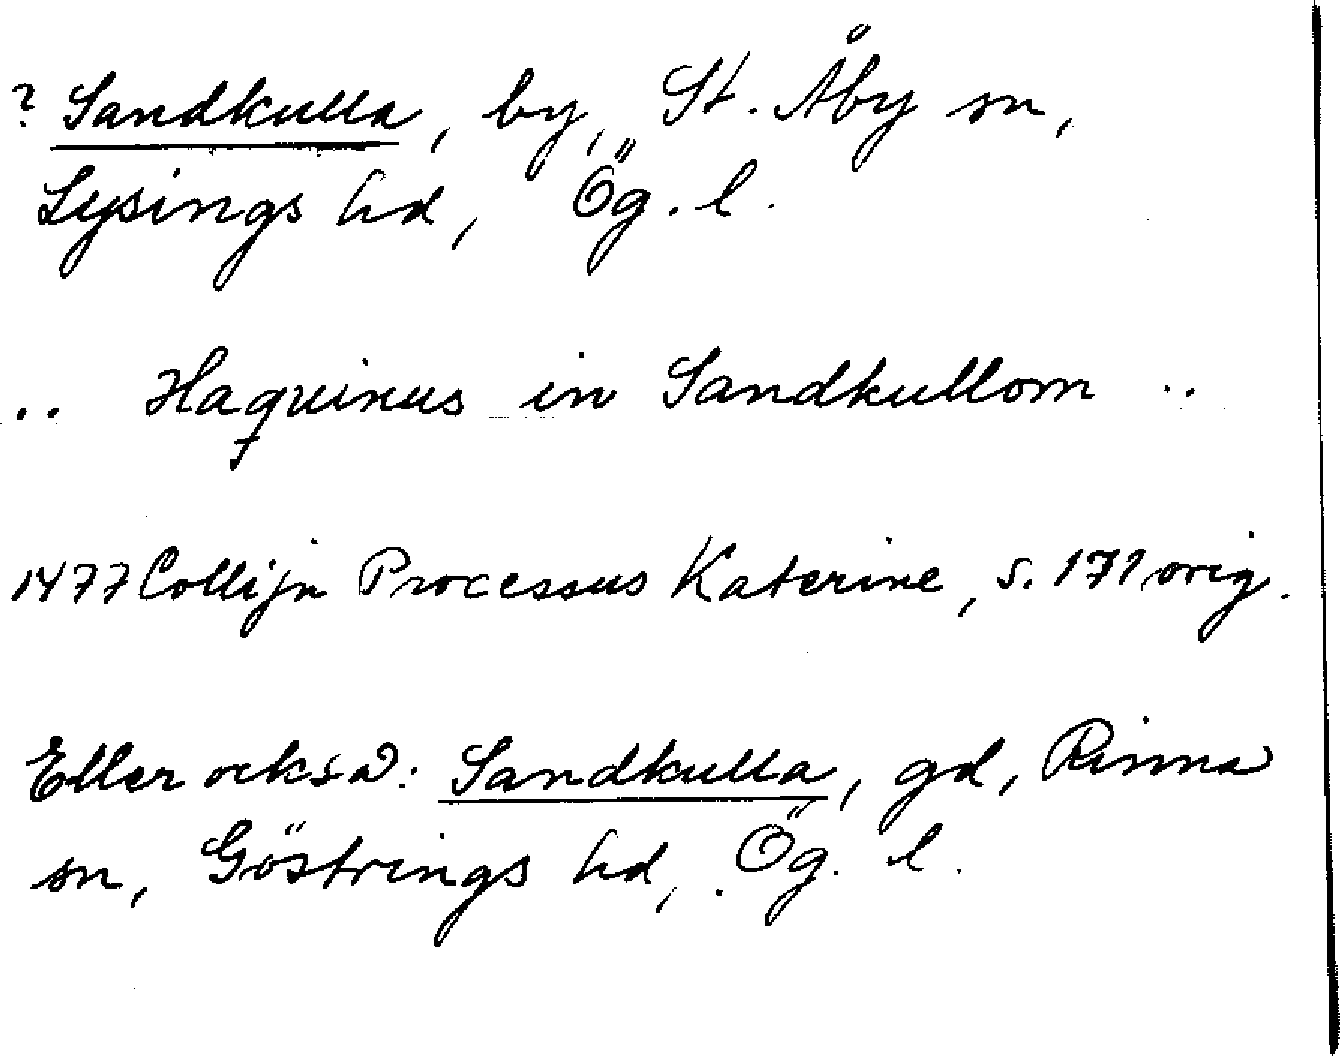 ? Sandkulla, by, St. Åby sn,
Lysings hd, Ög. l.
.. Haquinus in Sandkullom ..
1477 Collijn Processus Katerine, s. 171 orig.
Eller också: Sandkulla, gd, Rinna
sn, Göstrings hd, Ög. l.